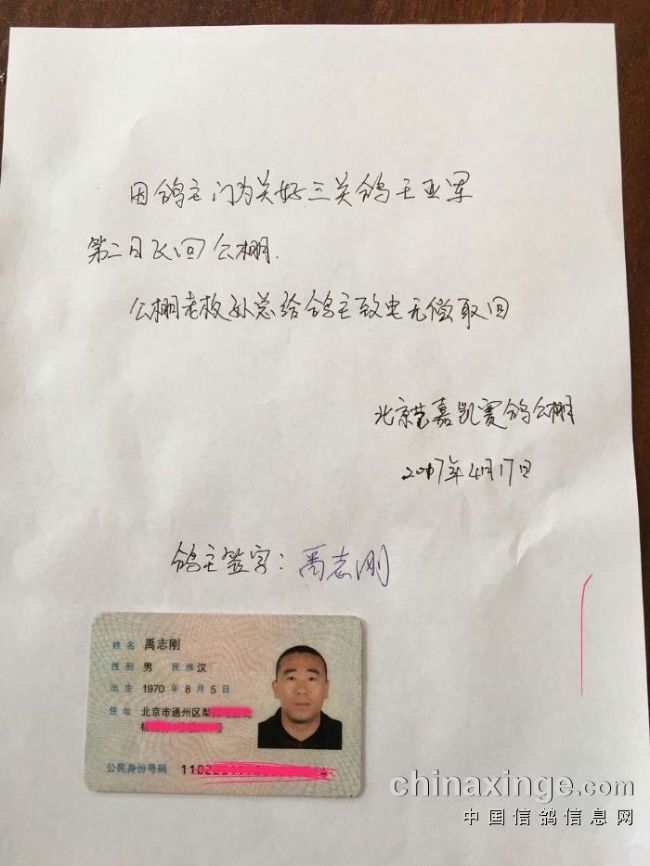 因鸽主门为关好三关鸽王亚军
第二日飞回公棚.
公棚老板孙总给鸽主致电无偿取回
北京艺嘉凯赛鸽公棚
2017年4月17日
鸽主签字：禹志刚
姓名 禹志刚
性别 男 民族 汉
出生 1970 年 8 月 5 日
住址 北京市通州区梨
公民身份号码
chinaxinge.com
中国信鸽信息网